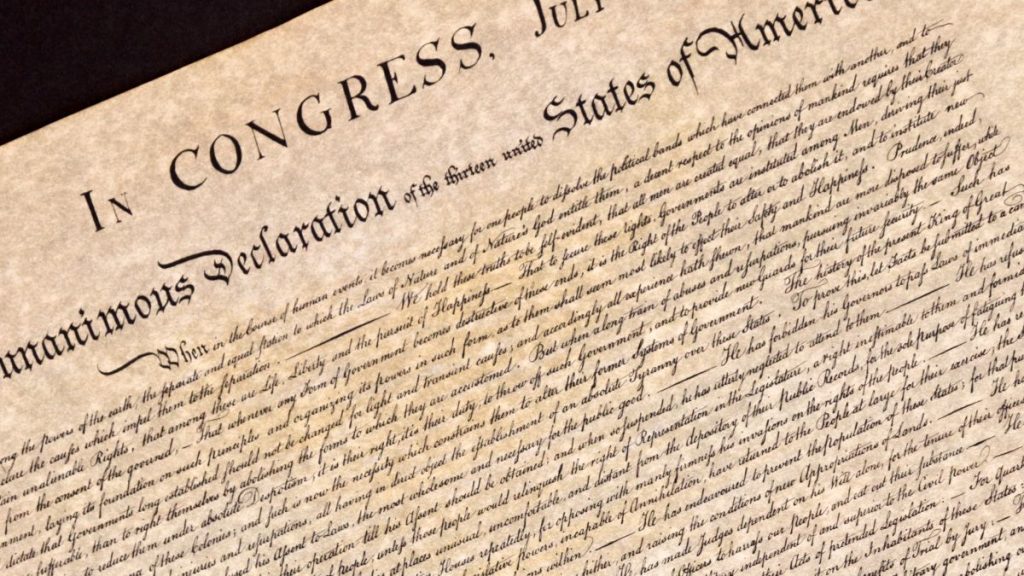 IN CONGRESS, JULY
unanimous Declaration of the thirteen united States of America
When in the Course of human events, it becomes necessary for one people to dissolve the political bands which have connected them with another, and to
the powers of the earth, the separate and equal station to which the Laws of Nature and of Nature's God entitle them, a decent respect to the opinions of mankind requires that they
the causes which impel them to the separation. — We hold these truths to be self-evident, that all men are created equal, that they are endowed by their Creator
unalienable Rights, that among these are Life, Liberty and the pursuit of Happiness. — That to secure these rights, Governments are instituted among Men, deriving their just
from the consent of the governed, — That whenever any Form of Government becomes destructive of these ends, it is the Right of the People to alter or to abolish it, and to institute new
laying its foundation on such principles and organizing its powers in such form, as to them shall seem most likely to effect their Safety and Happiness. Prudence, indeed,
that Governments long established should not be changed for light and transient causes; and accordingly all experience hath shewn, that mankind are more disposed to suffer, while
than to right themselves by abolishing the forms to which they are accustomed. But when a long train of abuses and usurpations, pursuing invariably the same Object
to reduce them under absolute Despotism, it is their right, it is their duty, to throw off such Government, and to provide new Guards for their future security. — Such has
of these Colonies; and such is now the necessity which constrains them to alter their former Systems of Government. The history of the present King of Great
injuries and usurpations, all having in direct object the establishment of an absolute Tyranny over these States. To prove this, let Facts be submitted to a
his Assent to Laws, the most wholesome and necessary for the public good. — He has forbidden his Governors to pass Laws of immediate
their operation till his Assent should be obtained; and when so suspended, he has utterly neglected to attend to them. — He has refused
of people, unless those people would relinquish the right of Representation in the Legislature, a right inestimable to them and
at places unusual, uncomfortable, and distant from the depository of their public Records, for the sole purpose of fatiguing
Houses repeatedly, for opposing with manly firmness his invasions on the rights of the people. — He has
powers, incapable of Annihilation, have returned to the People at large for their exercise; the
within. — He has endeavoured to prevent the population of these States; for that
hither, and raising the conditions of new Appropriations of Lands. — He
He has made Judges dependent on his Will alone, for the tenure of their
Officers to harrass our people, and eat out their substance.
independent of and superior to the civil power. —
Acts of pretended Legislation: — For
on the Inhabitants of these States:
of Trial by Jury: — For